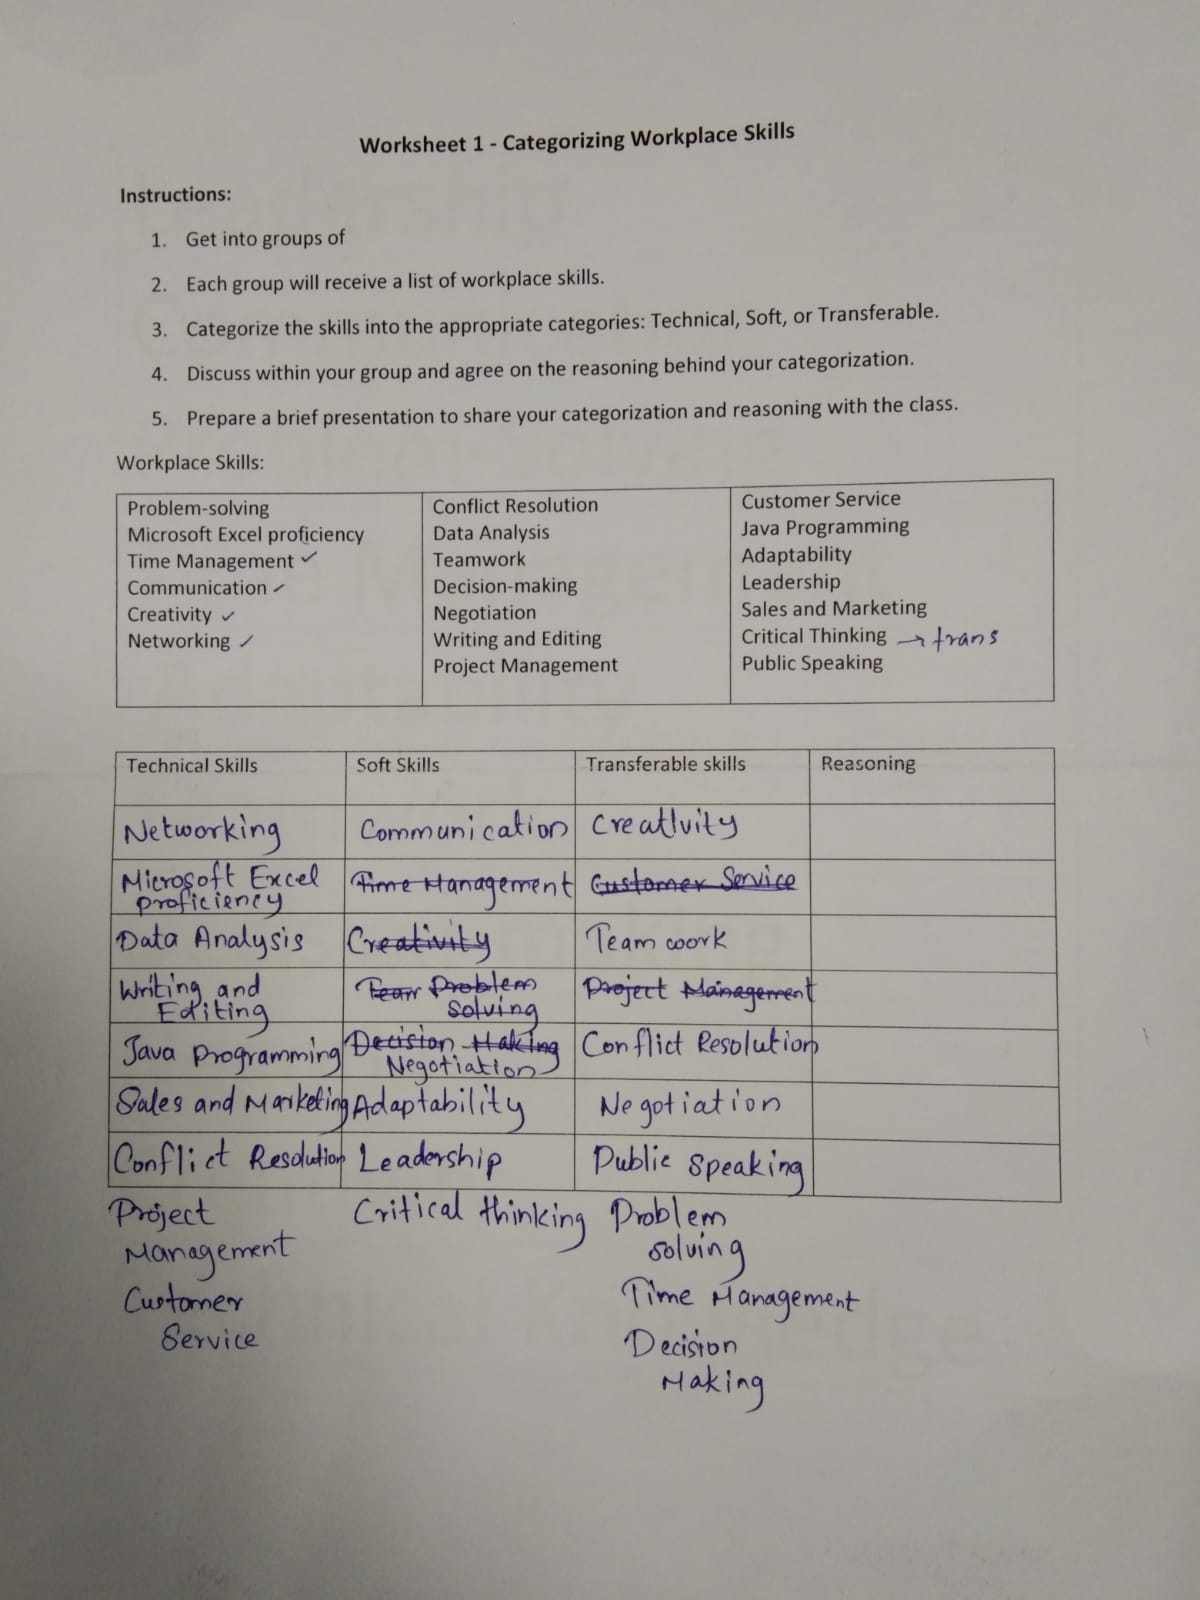 Worksheet 1 - Categorizing Workplace Skills
Instructions:
1. Get into groups of
2. Each group will receive a list of workplace skills.
3. Categorize the skills into the appropriate categories: Technical, Soft, or Transferable.
4. Discuss within your group and agree on the reasoning behind your categorization.
5. Prepare a brief presentation to share your categorization and reasoning with the class.
Workplace Skills:
Problem-solving
Microsoft Excel proficiency
Time Management ✓
Communication ✓
Creativity ✓
Networking ✓
Conflict Resolution
Data Analysis
Teamwork
Decision-making
Negotiation
Writing and Editing
Project Management
Customer Service
Java Programming
Adaptability
Leadership
Sales and Marketing
Critical Thinking → trans
Public Speaking
Technical Skills Soft Skills Transferable skills Reasoning
Networking Communication Creativity
Microsoft Excel Time Management Customer Service
proficiency
Data Analysis Creativity Team work
Writing and Team Problem Project Management
Editing Solving
Java Programming Decision Making Conflict Resolution
Negotiation
Sales and Marketing Adaptability Negotiation
Conflict Resolution Leadership Public Speaking
Project Critical thinking Problem
Management solving
Customer Time Management
Service Decision
Making